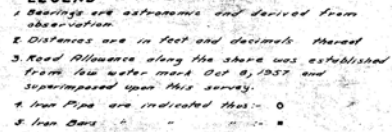 LEGEND
1. Bearings are astronomic and derived from
observation.
2. Distances are in feet and decimals thereof
3. Road Allowance along the shore was established
from low water mark Oct 8, 1957 and
superimposed upon this survey.
4. Iron Pipe are indicated thus:- o "
5. Iron Bars " " " :- ▪